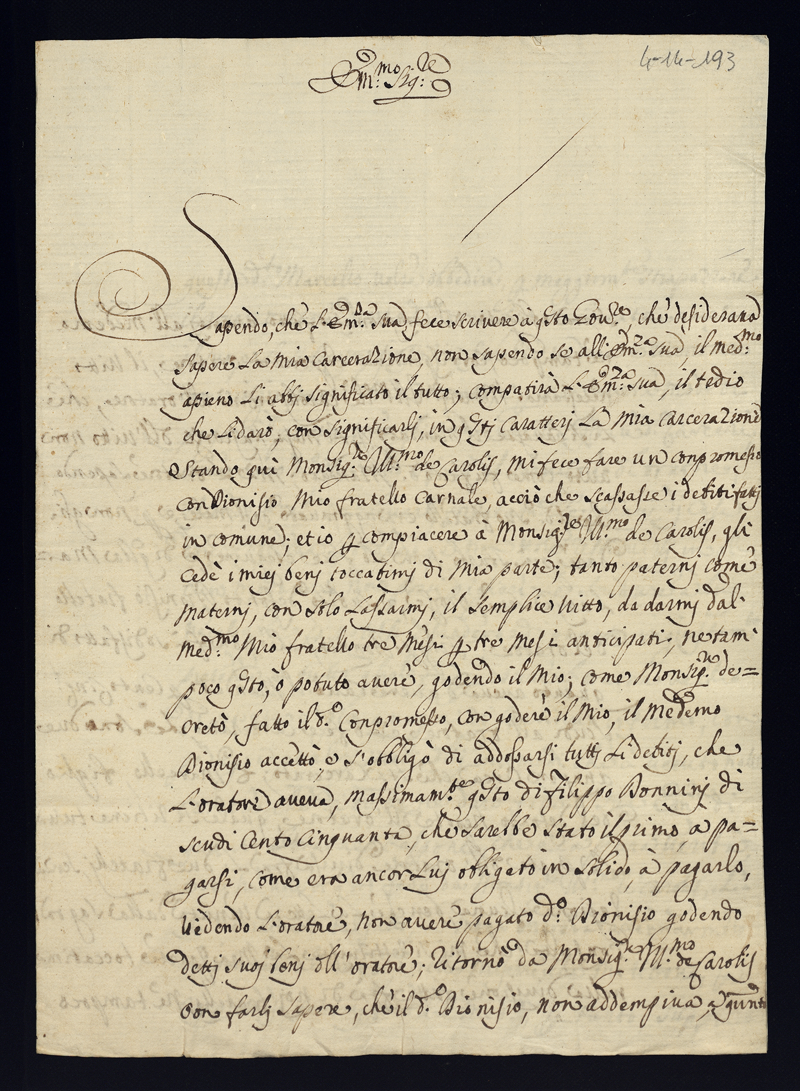 4-14-193
Em:mo Sig:re
Sapendo, che L'Em:za Sua, fece scrivere à q̃sto Gov:re, che desiderava
sapere La mia carcerazione, non sapendo se all'Em:za Sua, il med:mo
apieno Li abbj significato il tutto; compatirà L'Em:za Sua, il tedio
che Li darò, con significarlj, in q̃stj caratterj La mia carcerazione
Stando quì Monsig:re Ill:mo de Carolis, mi fece fare un conpromesso
con Dionisio mio fratello carnale, acciò che scassasse i debiti fattj
in comune; et io p compiacere à Monsig:re Ill:mo de Carolis, gli
cedè i miej benj toccatimj di mia parte; tanto paternj come
maternj, con solo Lassarmj, il semplice vitto, da darmj dal
med:mo mio fratello tre mesi p tre mesi anticipati, ne tam
poco q̃sto, ò potuto avere, godendo il mio; come Monsig:re de=
cretò, fatto il d:o conpromesso, con godere il mio, il medemo
Dionisio accettò, e s'obbligò di addossarsi tuttj Li debitj, che
L'oratore aveva, massimam:te q̃sto di Filippo Bonninj di
scudi cento cinquanta, che sarebbe stato il primo, a pa=
garsi, come era ancor Luj obbligato in solido, à pagarlo,
vedendo L'oratore, non avere pagato d:o Dionisio godendo
dettj suoj benj dell'oratore; ritornò da Monsig:re Ill:mo de Carolis
con farlj sapere, che il d:o Dionisio, non addempiva, a quanto